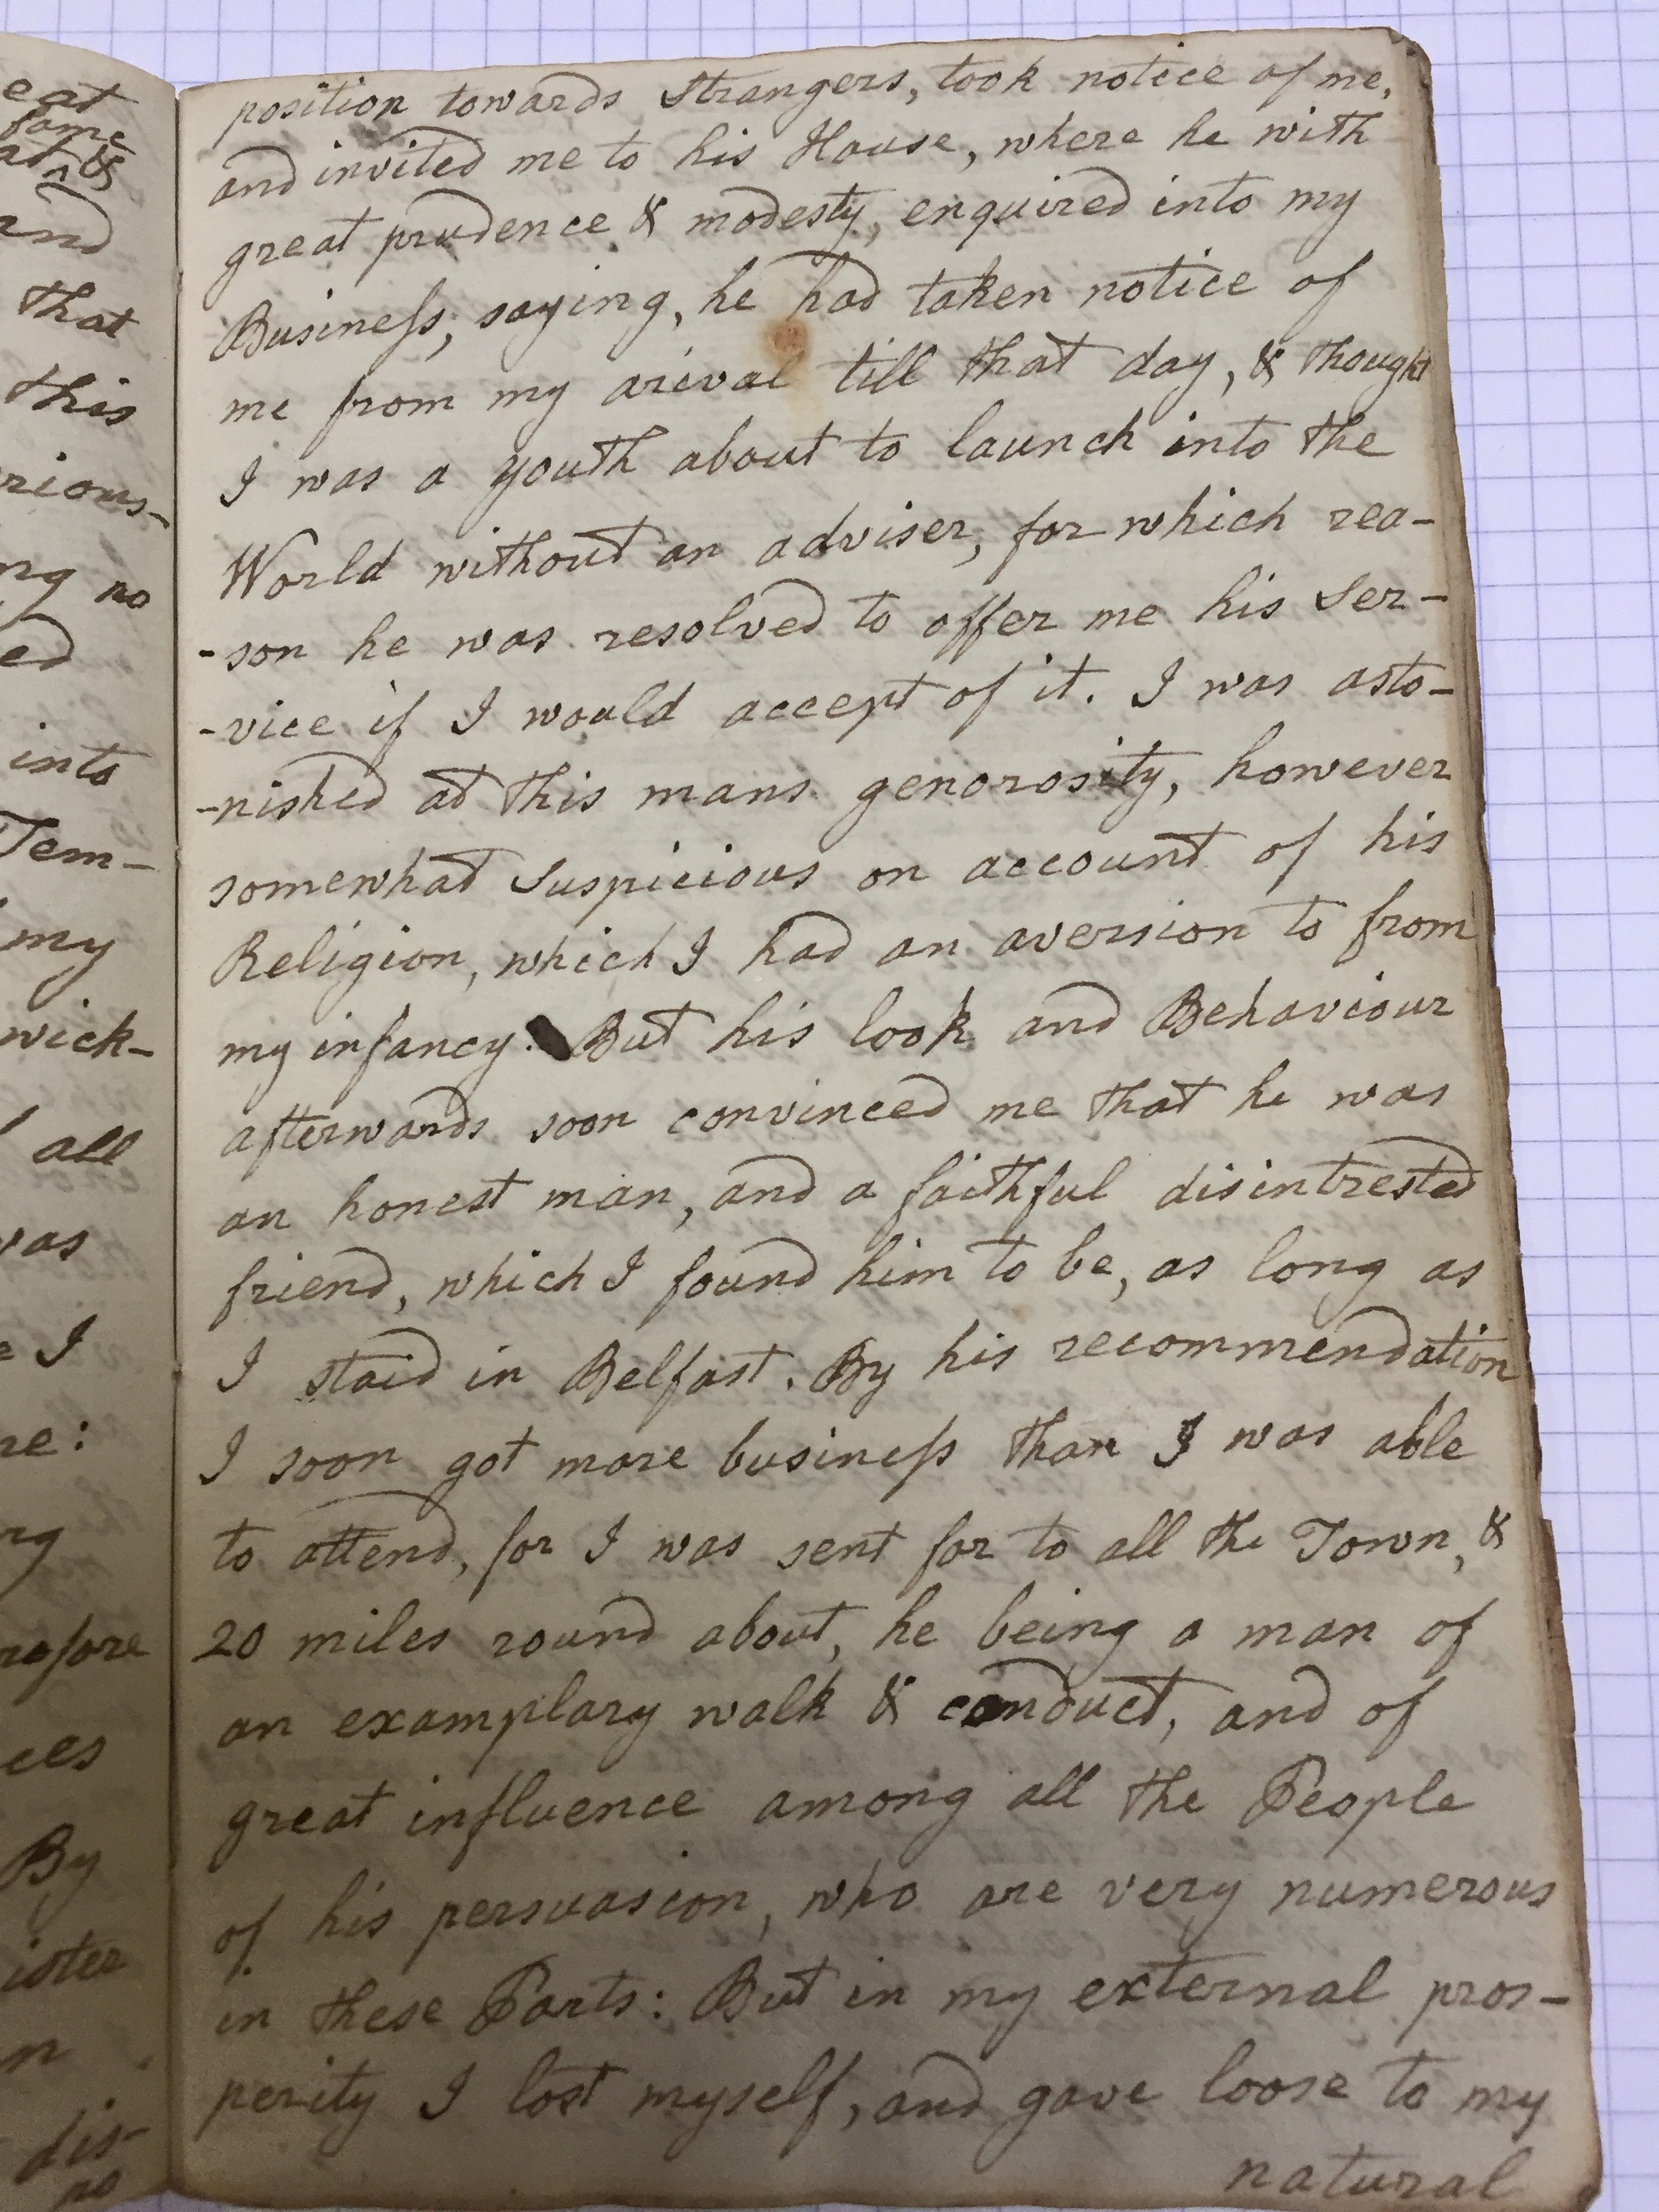 eat
same
at, &
and
that
this
rious-
ng no
ed
into
Tem-
my
wick-
all
was
e I
re:
ng
ces
By
ister
n
dis-
position towards Strangers, took notice of me,
and invited me to his House, where he with
great prudence & modesty, enquired into my
Businefs, saying, he had taken notice of
me from my arival till that day, & thought
I was a youth about to launch into the
World without an adviser, for which rea-
-son he was resolved to offer me his Ser-
-vice if I would accept of it. I was asto-
-nished at this mans genorosity, however
somewhat Suspicious on account of his
Religion, which I had an aversion to from
my infancy. But his look and Behaviour
afterwards soon convinced me that he was
an honest man, and a faithful disintrested
friend, which I found him to be, as long as
I staid in Belfast. By his recommendation
I soon got more businefs than I was able
to attend, for I was sent for to all the Town, &
20 miles round about, he being a man of
an examplary walk & conduct, and of
great influence among all the People
of his persuasion, who are very numerous
in these Parts: But in my external pros-
perity I lost myself, and gave loose to my
natural